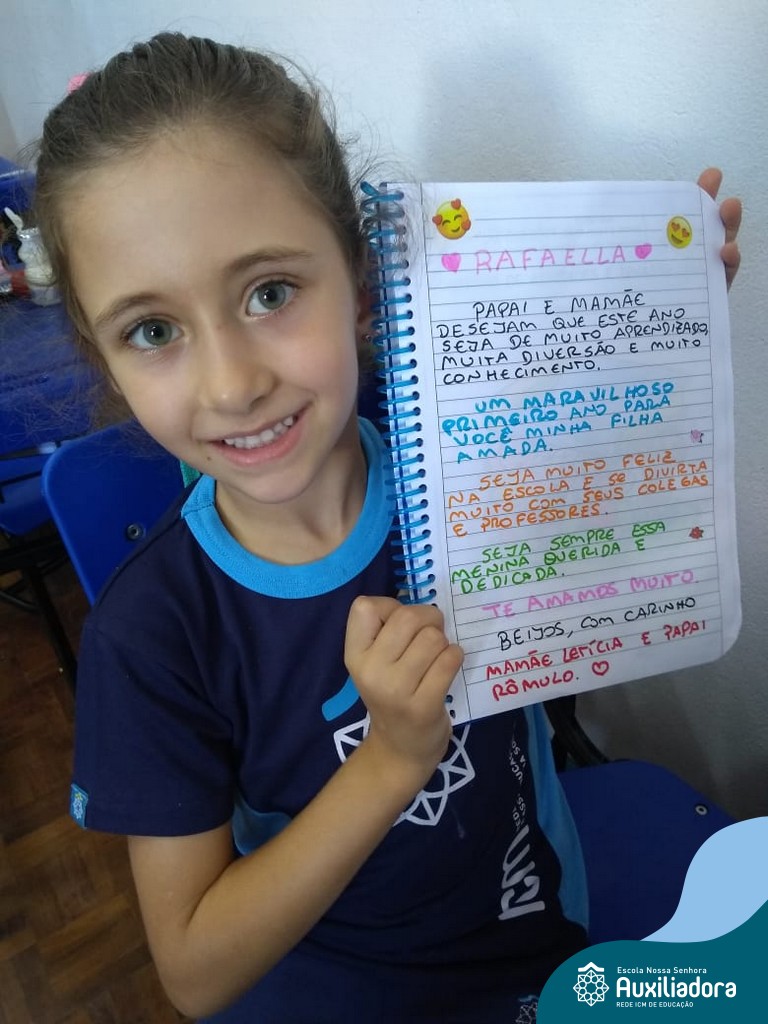 RAFAELLA
PAPAI E MAMÃE
DESEJAM QUE ESTE ANO
SEJA DE MUITO APRENDIZADO,
MUITA DIVERSÃO E MUITO
CONHECIMENTO.
UM MARAVILHOSO
PRIMEIRO ANO PARA
VOCÊ MINHA FILHA
AMADA.
SEJA MUITO FELIZ
NA ESCOLA E SE DIVIRTA
MUITO COM SEUS COLEGAS
E PROFESSORES.
SEJA SEMPRE ESSA
MENINA QUERIDA E
DEDICADA.
TE AMAMOS MUITO.
BEIJOS, COM CARINHO
MAMÃE LETÍCIA E PAPAI
RÔMULO.
Escola Nossa Senhora
Auxiliadora
REDE ICM DE EDUCAÇÃO